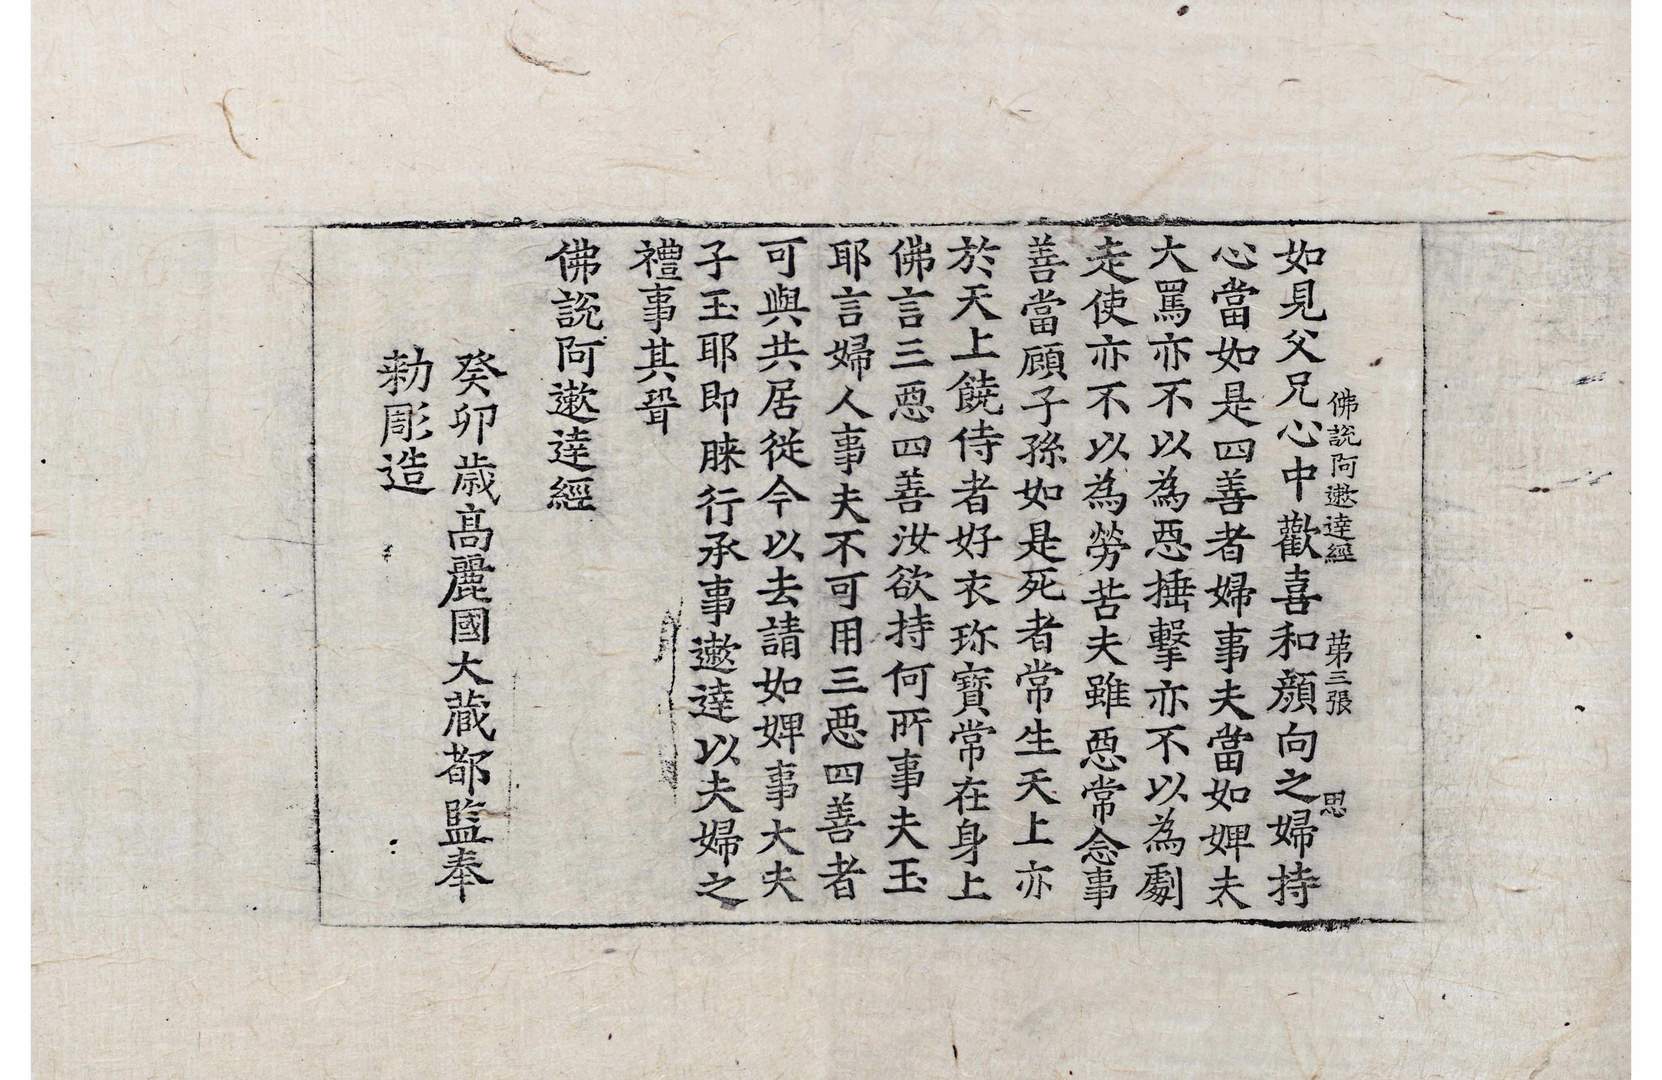 佛說阿遬達經 第三張 思
如見父兄心中歡喜和顔向之婦持
心當如是四善者婦事夫當如婢夫
大罵亦不以為惡捶擊亦不以為劇
走使亦不以為勞苦夫雖惡常念事
善當顧子孫如是死者常生天上亦
於天上饒侍者好衣珎寶常在身上
佛言三惡四善汝欲持何所事夫玉
耶言婦人事夫不可用三惡四善者
可與共居從今以去請如婢事大夫
子玉耶即膝行承事遬達以夫婦之
禮事其聟
佛說阿遬達經
癸卯歲高麗國大藏都監奉
勅彫造